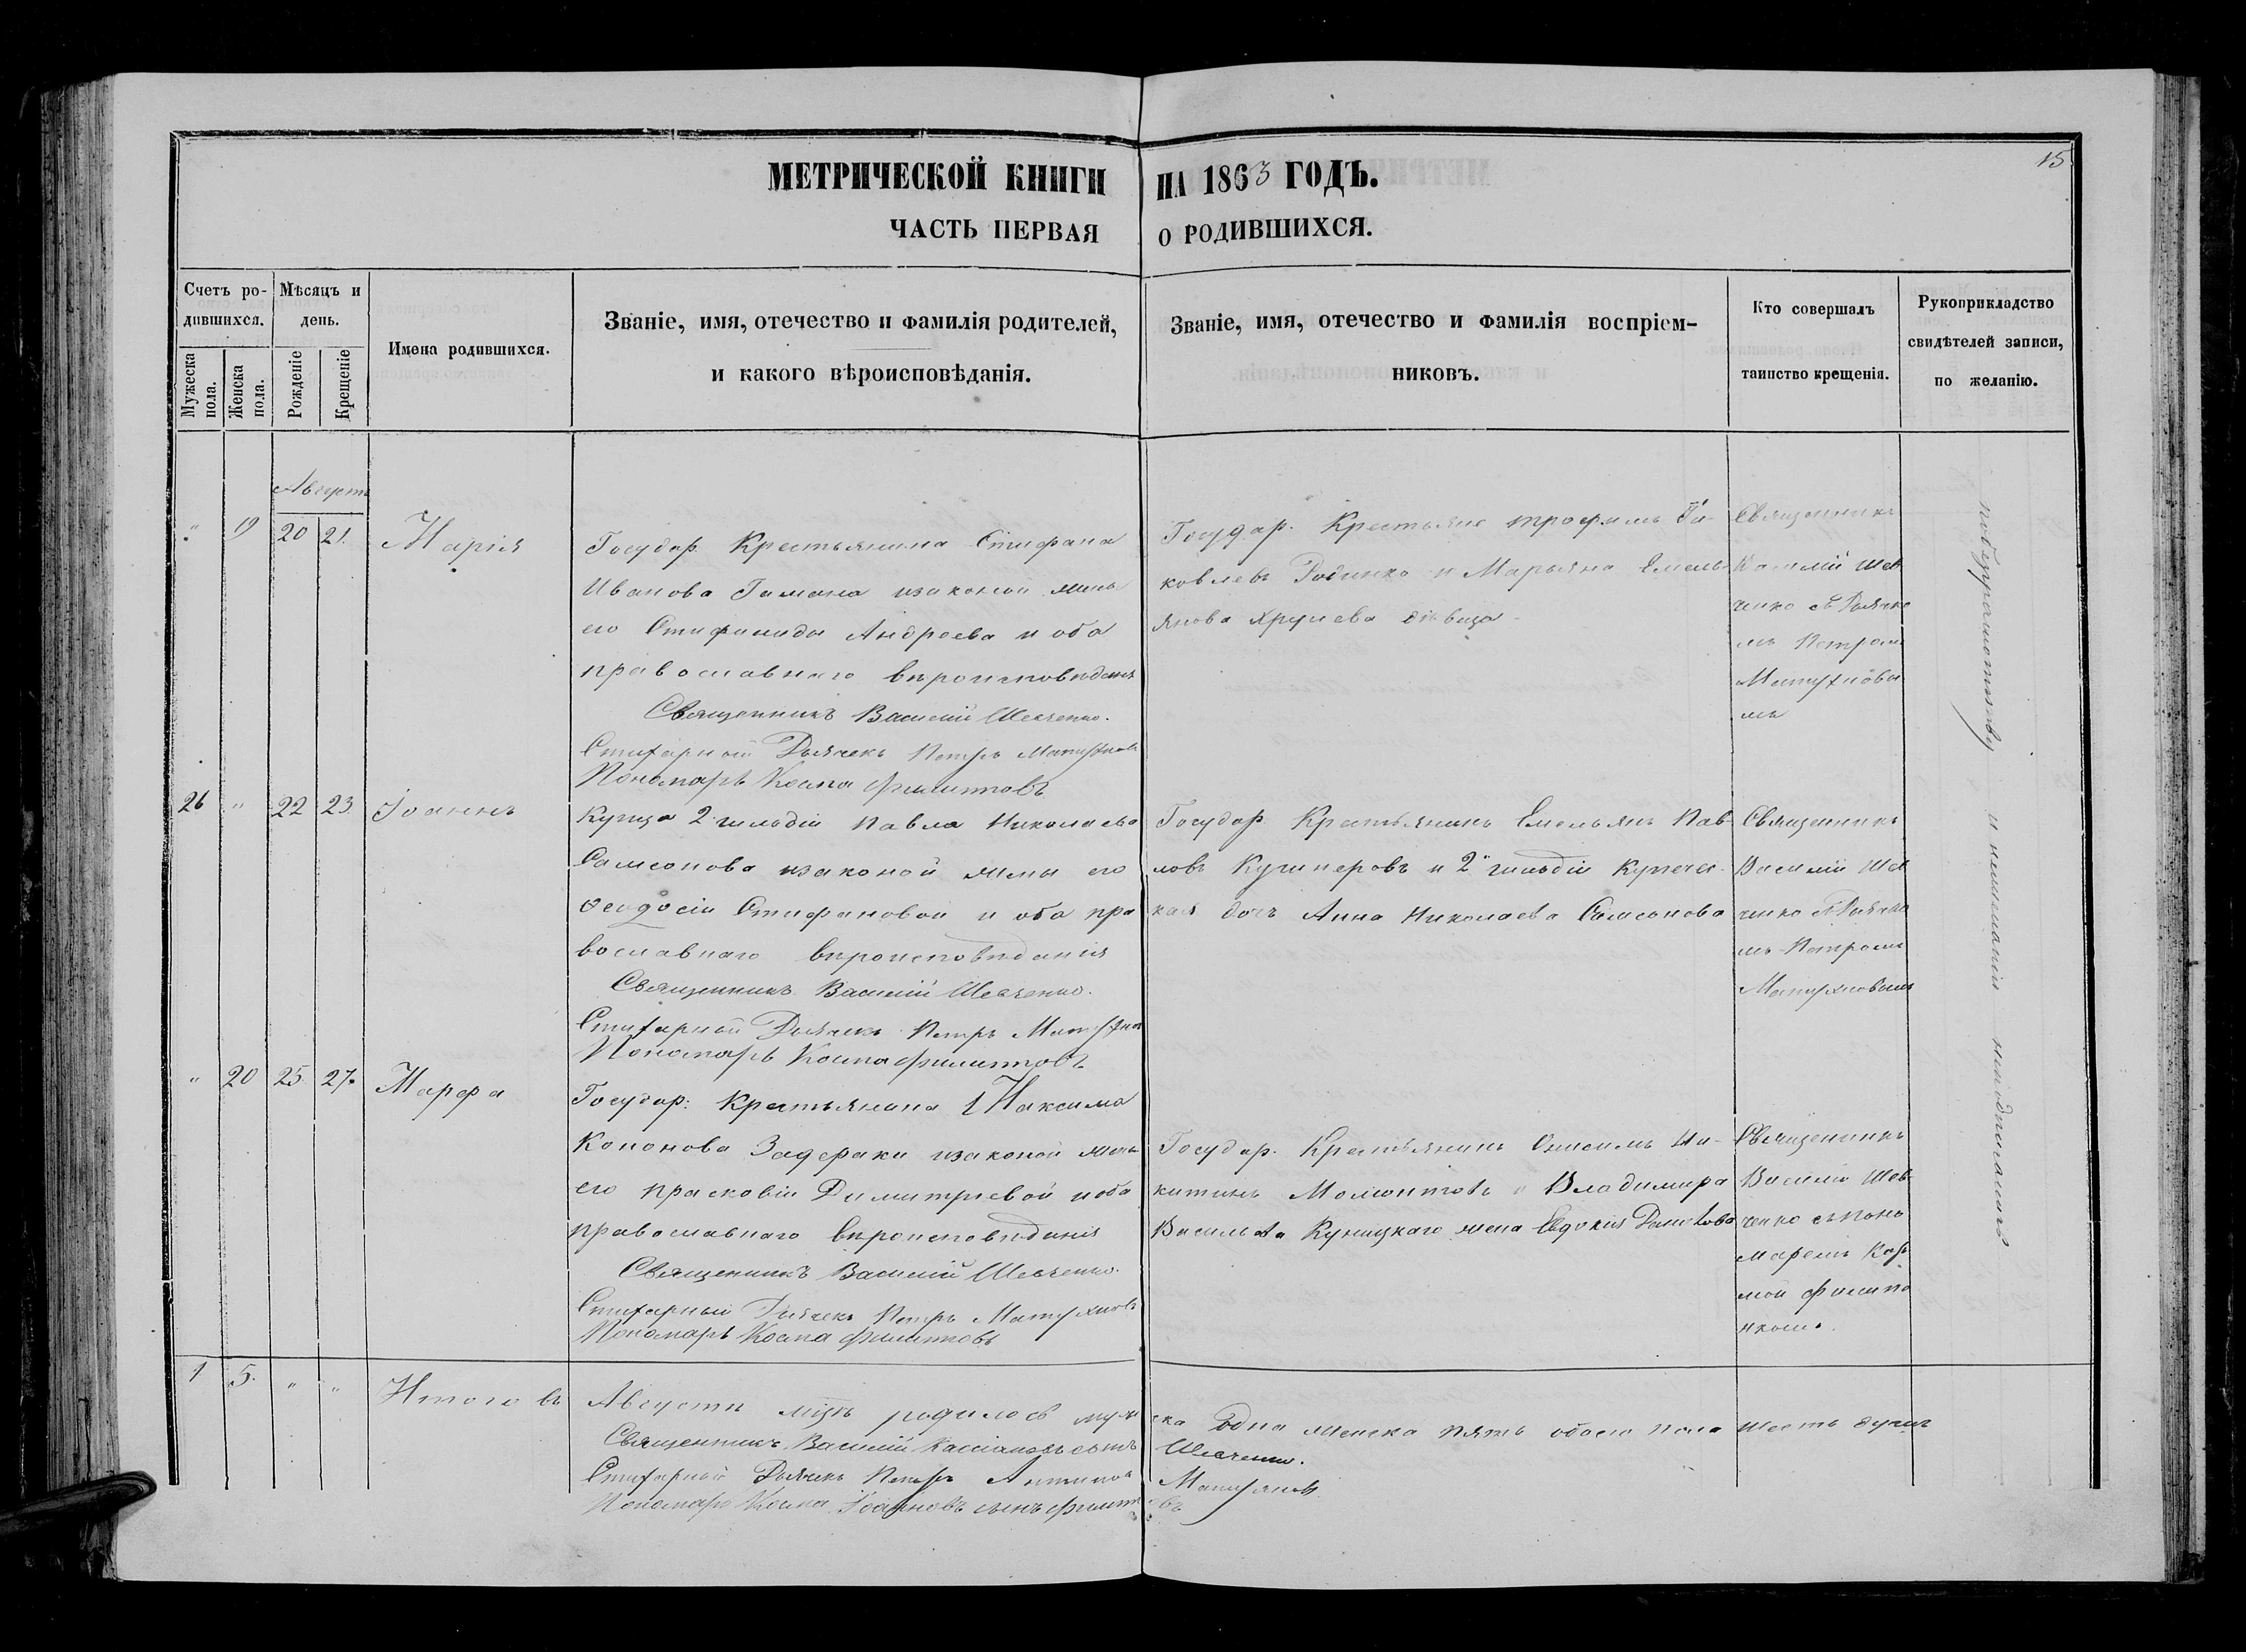 15
МЕТРИЧЕСКОЙ КНИГИ НА 1863 ГОДЪ.
ЧАСТЬ ПЕРВАЯ О РОДИВШИХСЯ.
Счетъ ро-
дившихся.
Мужеска пола.
Женска пола.
Мѣсяцъ и
день.
Рожденіе
Крещеніе
Имена родившихся.
Званіе, имя, отечество и фамилія родителей,
и какого вѣроисповѣданія.
Званіе, имя, отечество и фамилія воспріем-
никовъ.
Кто совершалъ
таинство крещенія.
Рукоприкладство
свидѣтелей записи,
по желанію.
Августъ
" 19 20 21. Марія
Государ. Крестьянина Стефана
Иванова Гамана изаконой жены
его Стефаниды Андреева и оба
православнаго вѣроисповѣдан.
Священникъ Василій Шевченко.
Стихарный Дьячекъ Петръ
Пономарь Косма Филиповъ
Государ. Крестьяне трофимъ Я-
ковлевъ и Марьяна Емель
янова дѣвица
Священникъ
Василій Шев
ченко съ Дьячко
мъ Петромъ
мъ
26 " 22 23. Іоаннъ
Купца 2 гильдіи Павла Николаева
Самсонова изаконой жены его
Ѳеодосіи Стефановой и оба пра
вославнаго вѣроисповѣданія
Священникъ Василій Шевченко.
Стихарный Дьячекъ Петръ
Пономарь Косма Филиповъ
Государ. Крестьянинъ Емельянъ Пав-
ловъ и 2й гильдіи Купечес-
кая дочь Анна Николаева Самсонова
Священникъ
Василій Шев
ченко съ Дьячко
мъ Петромъ
" 20 25. 27. Марфа
Государ: Крестьянина Максима
Кононова Задераки изаконой жены
его прасковіи Димитріевой иоба
православнаго вѣроисповѣданія
Священникъ Василій Шевченко.
Стихарный Дьячекъ Петръ
Пономарь Косма Филиповъ
Государ. Крестьянинъ Онисимъ Ни-
китинъ и Владимира
Васильева Куницкаго жена Евдокія
Священникъ
Василій Шев-
ченко съ поно
маремъ Кось
мой
неграмотнЂ
1 5. " " Итого въ Августѣ мѣсяцѣ родилось муже ска одна женска пять обоего пола шесть душъ
Священникъ Василій Кассіановъ сынъ Шевченко.
Стихарный Дьячекъ Петръ
Пономарь Косма Іоанновъ сынъ Филипо въ